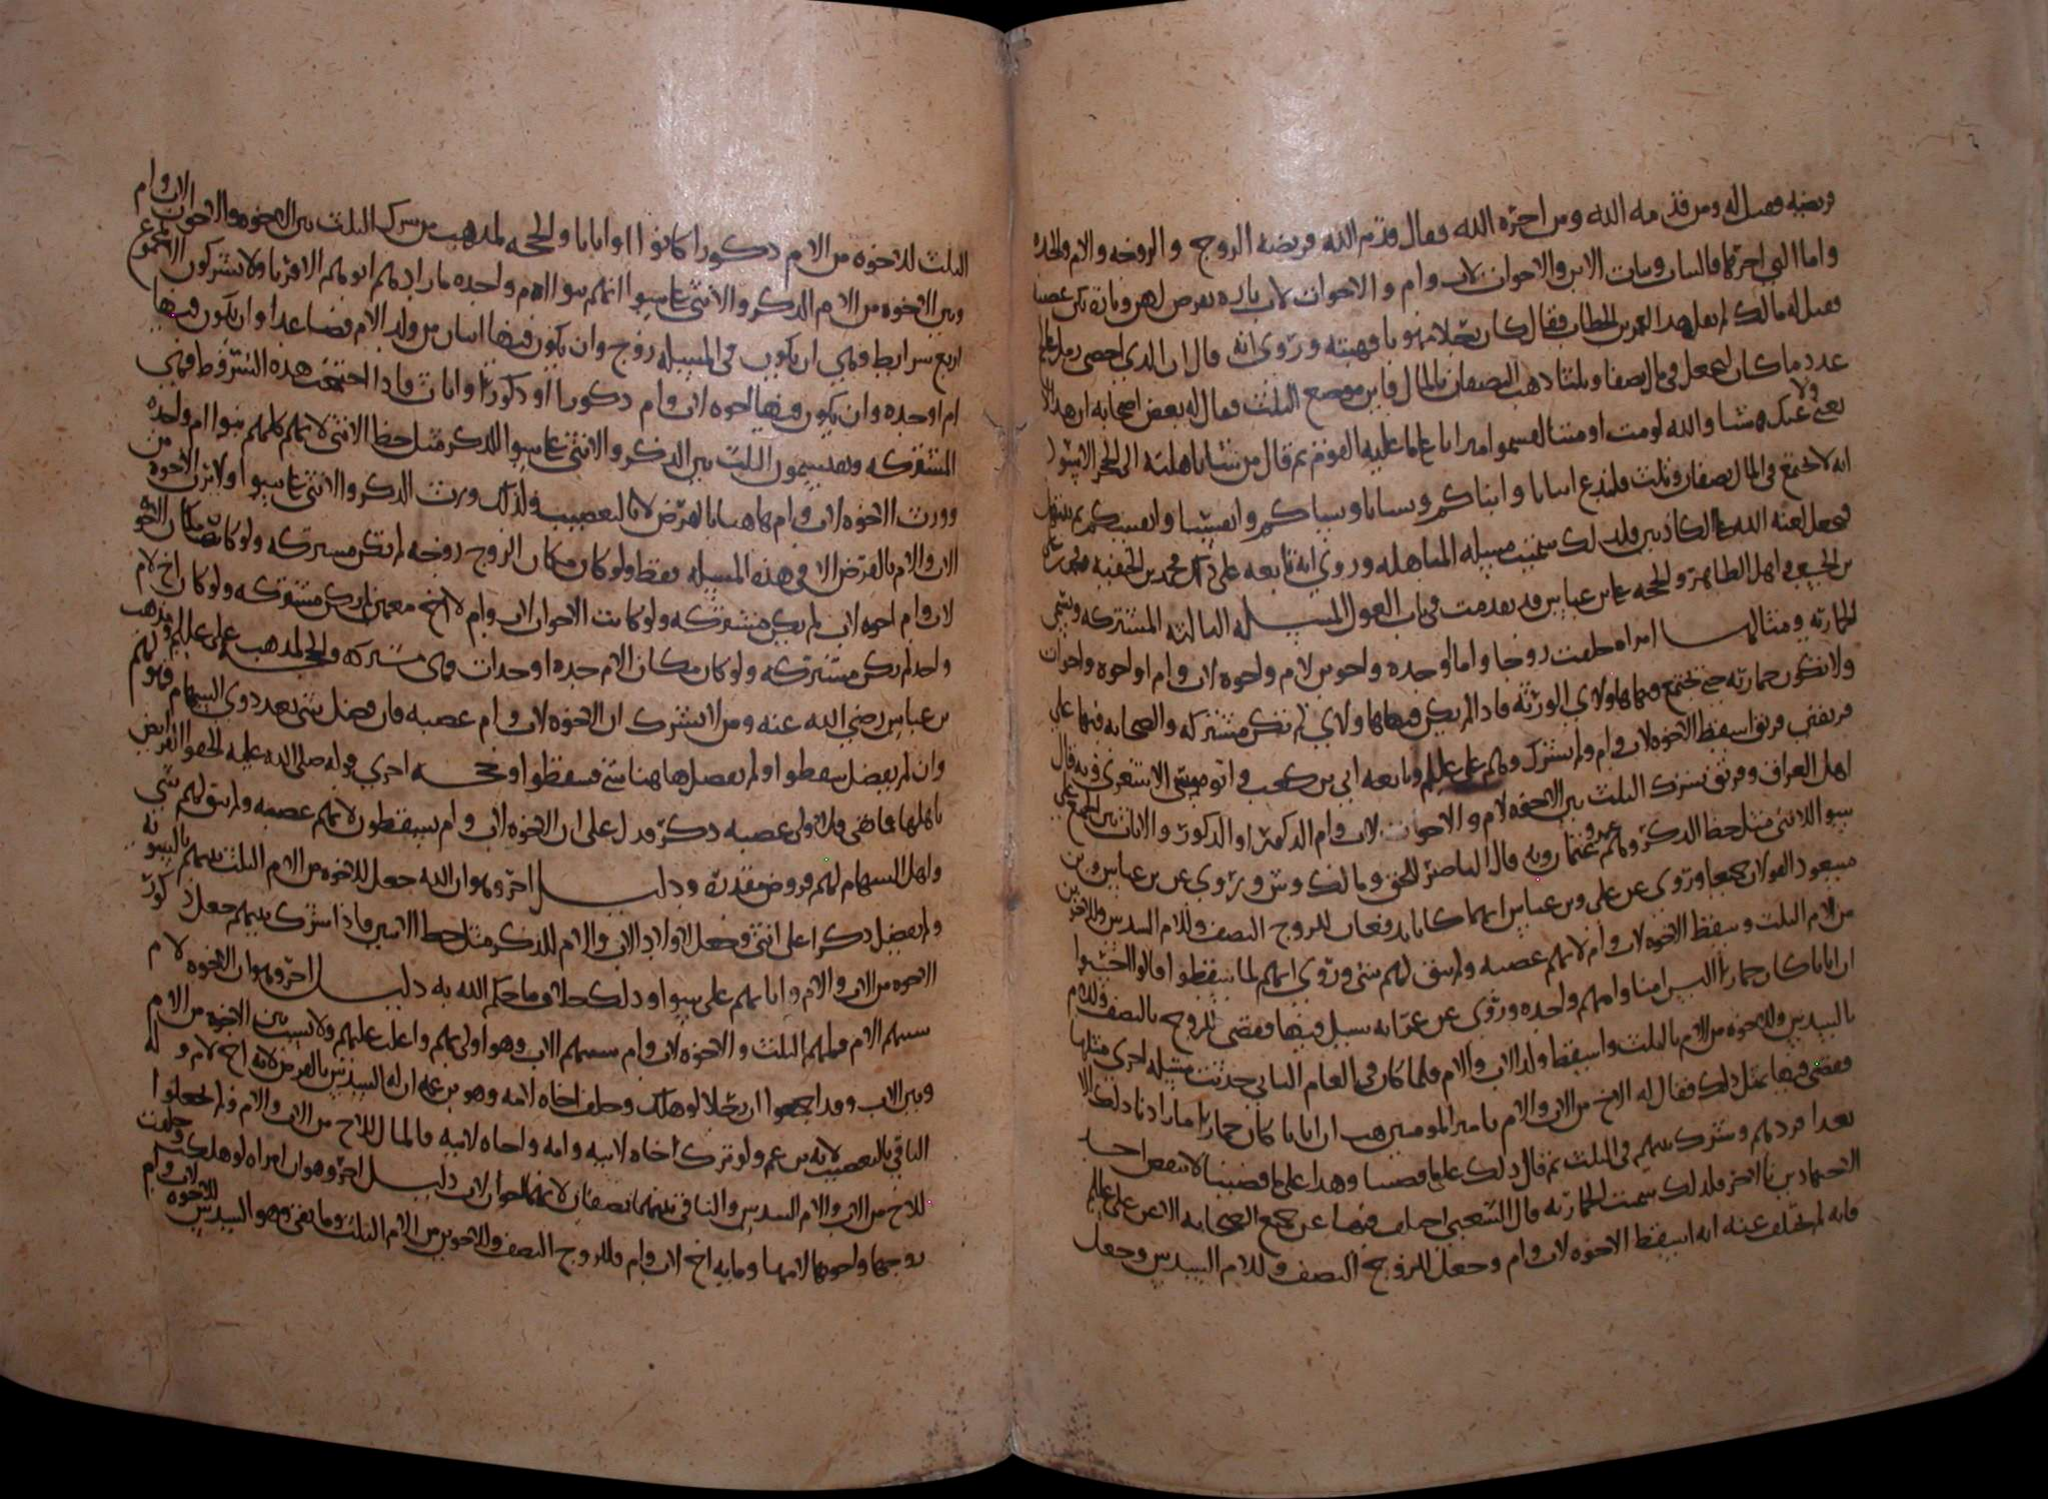 فريضه فقيل له ومن قدمه الله ومن اخره الله فقال قدم الله فريضه الزوج والزوجه والام والجده
واما التي اخرها فالبنات وبنات الابن والاخوات لاب وام والاخوات لاب تاره يفرض لهن وتارة يكن عصبا
فقيل له مالك لم تقل هذا لعمر بن الخطاب فقال كان رجلا مهوبا فهبته وروي انه قال ان الذي احصى رمل عالج
عدد ما كان ليجعل في مال نصفا وثلثا ذهب النصفان بالمال فاين موضع الثلث فقال له بعض اصحابه ان هذا لا
يغني عنك ولا شيا والله لو مت او متنا لقسموا ميراثنا على ما عليه القوم ثم قال من شا باهلته الى الحجر الاسود
انه لا يجتمع في المال نصفان وثلث فلندع ابنانا وابناكم ونسانا ونساكم وانفسنا وانفسكم ثم نبتهل
فنجعل لعنة الله على الكاذبين فلذلك سميت مسيله المباهله وروي انه تابعه على ذلك محمد بن الحنفيه
واهل الظاهر والحجه على بن عباس قد تقدمت في باب العول المسيله الثالثه المشتركه وتسمى
الحمارية ومثالها امراه خلفت زوجا واما او جده واخوين لام واخوه لاب وام او اخوه واخوات
ولا تكون حمارية حتى تجتمع فيها هاولاي الورثة فاذا لم يكن فيها هاولاي لم تكن مشتركه والصحابه فيها على
فريقين فريق اسقط الاخوه لاب وام ولم يشرك وهم علي عليلم وتابعه ابي بن كعب وابو موسى الاشعري وبه قال
اهل العراق وفريق شرك الثلث بين الاخوه لام والاخوات لاب وام الذكور او الذكور والاناث
سوا للانثى مثل حظ الذكر وهم عمر وعثمان وبه قال الناصر للحق ومالك وش وروي عن بن عباس وبن
مسعود القولان جميعا وروي عن علي وبن عباس انهما كانا يدفعان للزوج النصف وللام السدس وللاخوين
من الام الثلث وسقط الاخوه لاب وام لانهم عصبه ولم يبق لهم شي وروي انهم لما سقطوا قالوا احسبوا
ان ابانا كان حمارا اليس امنا وامهم واحده وروي عن عمر انه سيل فيها فقضى للزوج بالنصف وللام
بالسدس وللاخوه من الام بالثلث واسقط ولد الاب والام فلما كان في العام الثاني حدثت مسيله اخرى مثلها
فقضى فيها بمثل ذلك فقال له الاخ من الاب والام يامير المومنين هب ان ابانا كان حمارا ما زادنا ذلك الا
بعدا فردهم وشرك بينهم في الثلث ثم قال ذلك على ما قضينا وهذا على ما قضينا لا ينقض احد
الاجتهادين بالاخر فلذلك سميت الحمارية قال الشعبي اختلف فيها عن جميع الصحابه الا عن علي عليلم
فانه لم يختلف عنه انه اسقط الاخوه لاب وام وجعل للزوج النصف وللام السدس وجعل
الثلث للاخوه من الام ذكورا كانوا او اناثا والحجه لمذهب من شرك الثلث بين الاخوه والاخوات لاب وام
وبين الاخوه من الام الذكر والانثى على سوا انهم بنوا ام واحده ما زادهم ابوهم الا قربا ولا يشركون الا بمجموع
اربع شرايط وهي ان يكون في المسيله زوج وان يكون فيها اثنان من ولد الام فصاعدا وان يكون فيها
ام او جده وان يكون فيها اخوه لاب وام ذكورا او ذكورا واناث فاذا اجتمعت هذه الشروط فهي
المشتركه ويقتسمون الثلث بين الذكر والانثى على سوا للذكر مثل حظ الانثى لانهم كلهم بنوا ام واحده
وورث الاخوه لاب وام هاهنا بالفرض لا بالتعصيب ولذلك ورث الذكر والانثى على سوا ولا يرث الاخوه من
الاب والام بالفرض الا في هذه المسيله فقط ولو كان مكان الزوج زوجه لم تكن مشتركه ولو كان مكان الاخوه
لاب وام اخوه لاب لم تكن مشتركه ولو كانت الاخوات لاب وام لا اخ معهن لم تكن مشتركه ولو كان اخ لام
واحد لم تكن مشتركه ولو كان مكان الام جده او جدات فهي مشتركه والحجه لمذهب علي عليلم ومذهب
بن عباس رضي الله عنه ومن لا يشرك ان الاخوه لاب وام عصبه فان فضل شي بعد ذوي السهام فهو لهم
وان لم يفضل سقطوا ولم يفضل هاهنا شي فسقطوا وحجه اخرى قوله صلى الله عليه الحقوا الفرايض
باهلها فما بقي فلاولى عصبه ذكر فدل على ان الاخوه لاب وام يسقطون لانهم عصبه ولم يبق لهم شي
واهل السهام لهم فروض مقدرة ودليل اخر وهو ان الله جعل للاخوه من الام الثلث بينهم بالسويه
ولم يفضل ذكرا على انثى وجعل لاولاد الاب والام للذكر مثل حظ الانثيين فاذا اشرك بينهم جعل ذكور
الاخوه من الاب والام واناثهم على سوا وذلك خلاف ما حكم الله به دليل اخر وهو ان الاخوه لام
سهم الام فلهم الثلث والاخوه لاب وام سهم الاب وهو اولى بهم واغلب عليهم ولا نسب بين الاخوه من الام
وبين الاب وقد اجمعوا ان رجلا لو هلك وخلف اخاه لامه وهو بن عمه ان له السدس بالفرض لانه اخ لام وله
الباقي بالتعصيب لانه بن عم ولو ترك اخاه لابيه وامه واخاه لابيه فالمال للاخ من الاب والام ولم يجعلوا
للاخ من الاب والام السدس والباقي بينهما نصفان لانهما اخوان لاب دليل اخر وهو ان امراه لو هلكت وخلفت
زوجها واخويها لامها ومايه اخ لاب وام فللزوج النصف وللاخوين من الام الثلث وما بقي وهو السدس للاخوه لاب وام